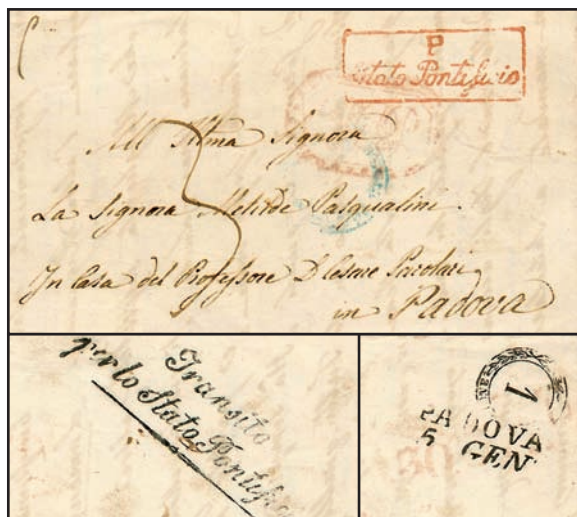 P
Stato Pontificio
All' Illma Signora
La Signora Pasqualini
In Casa del Professore Dr Cesare
in Padova
Transito
per lo Stato Pontificio
1
PADOVA
5 GEN